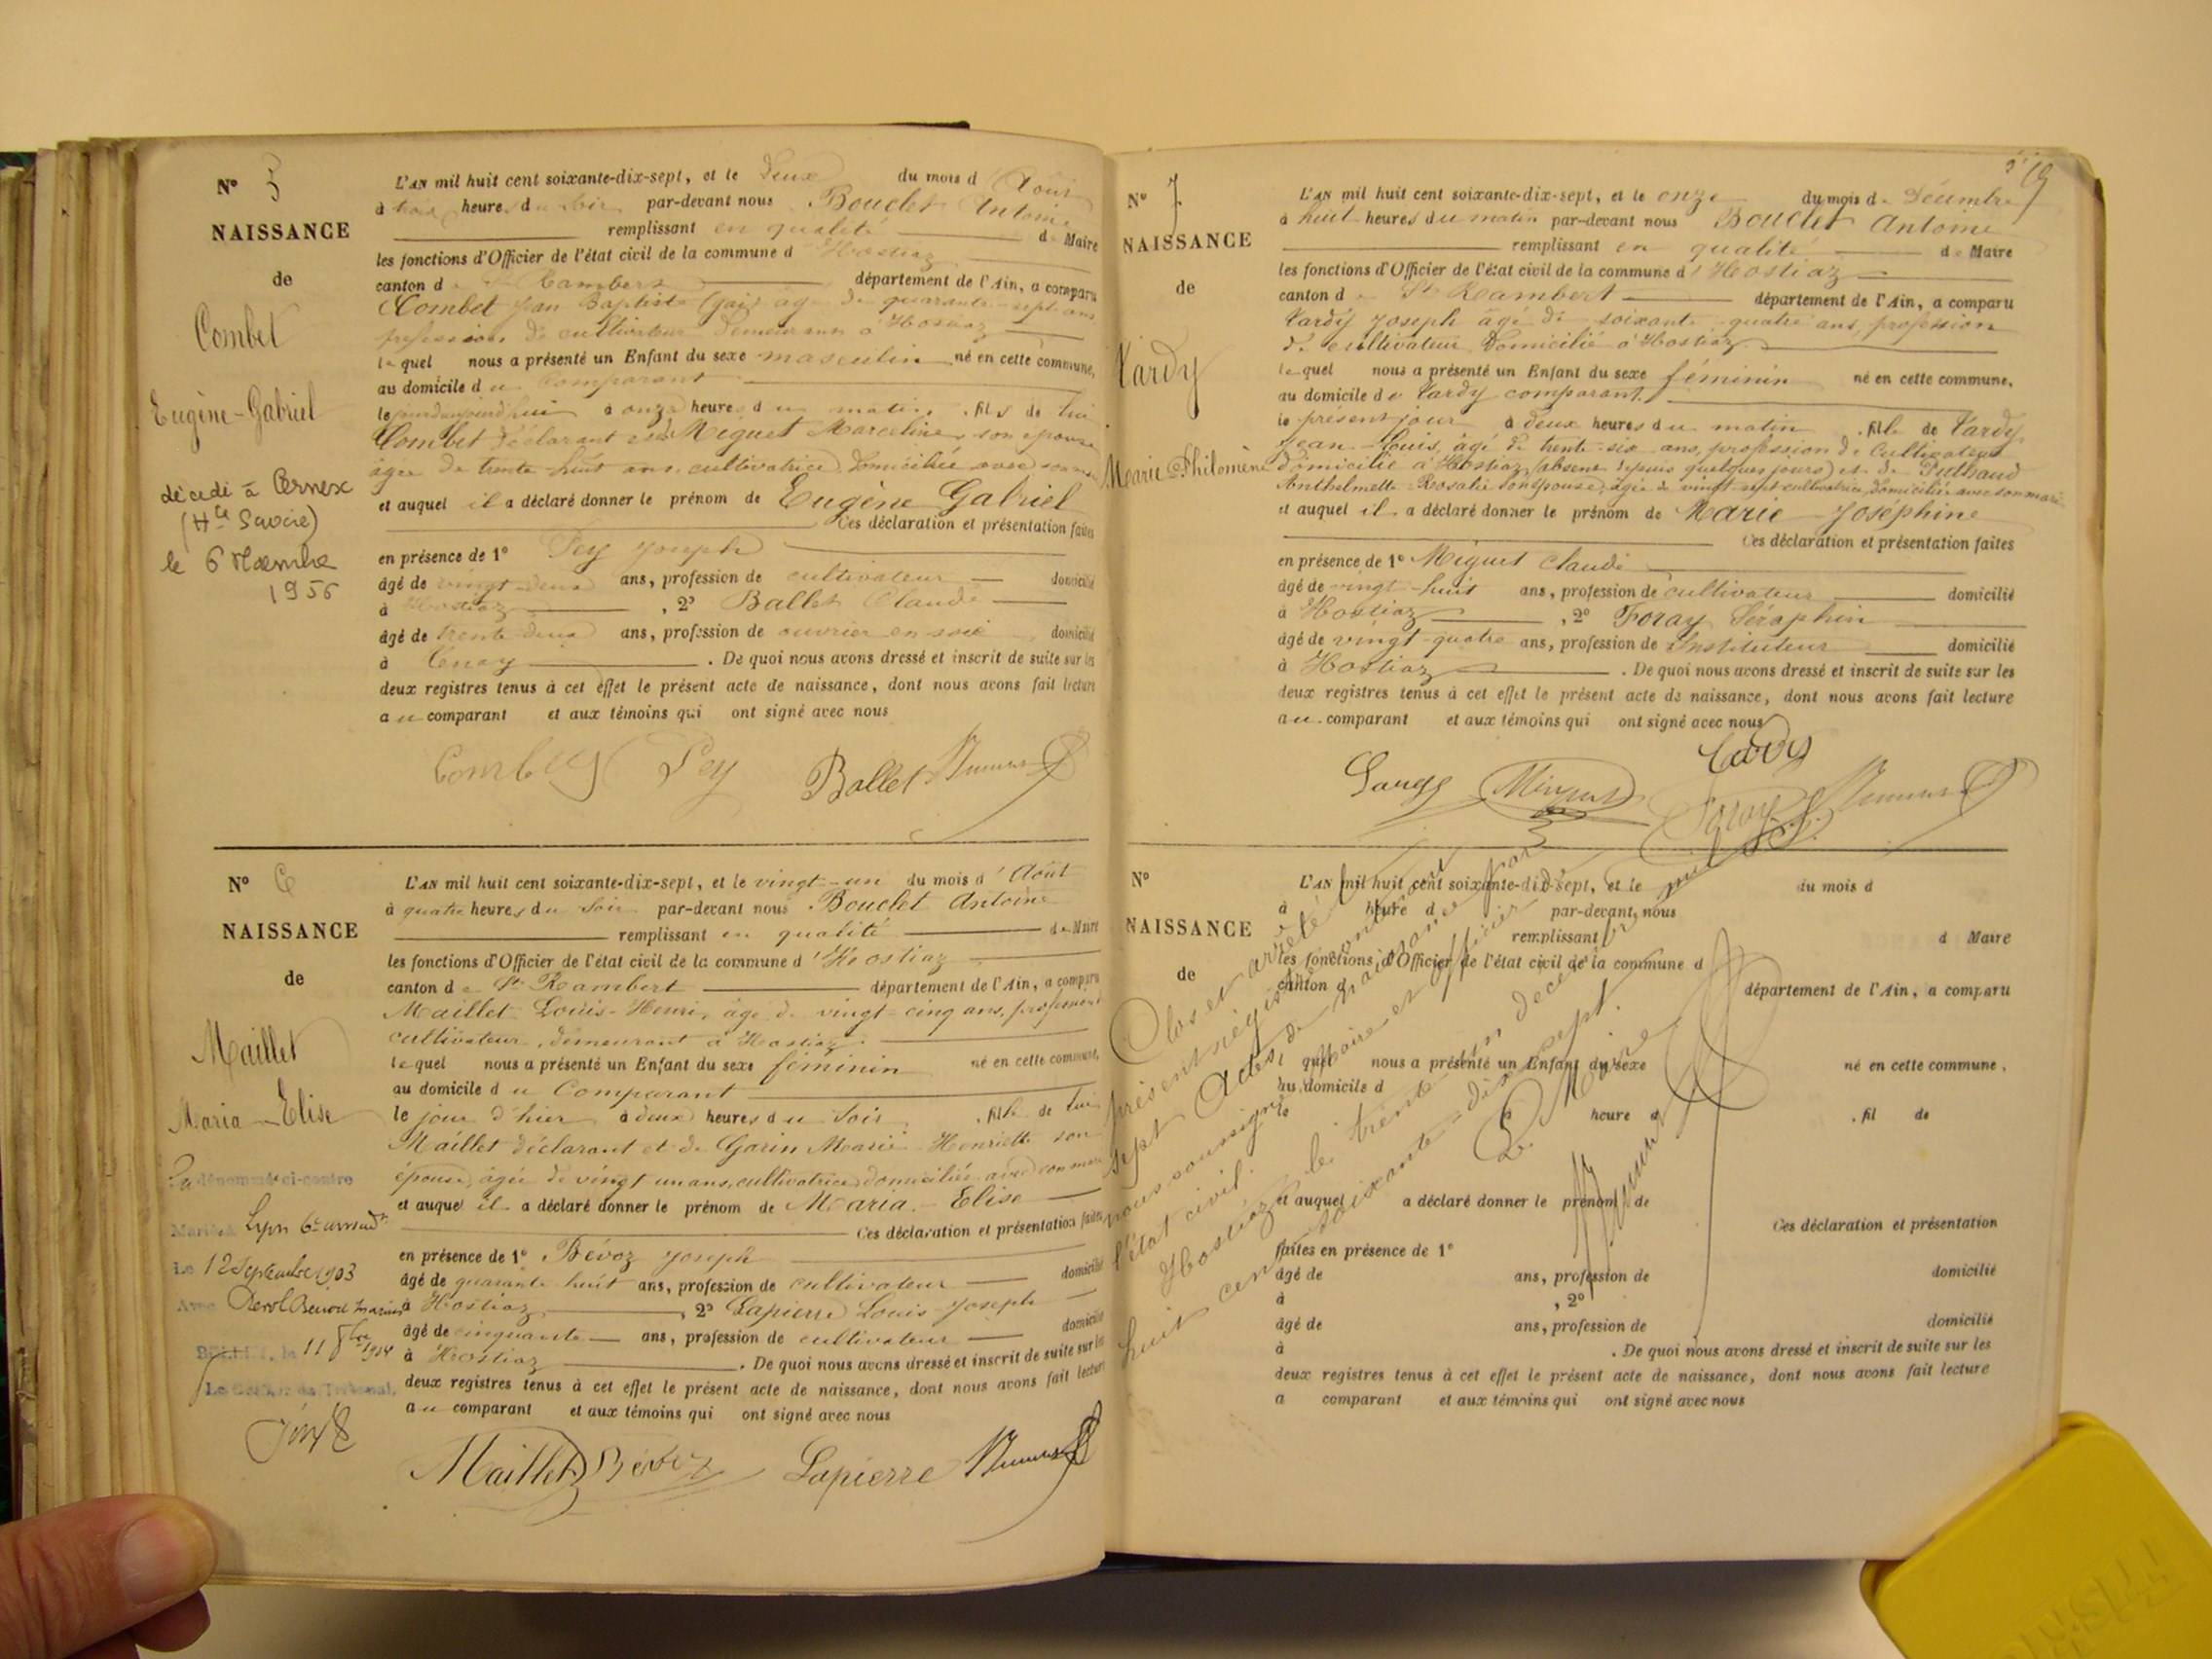 N° 5
NAISSANCE
de
Combet
Eugène-Gabriel
décédé à Cernex
(Hte Savoie)
le 6
1956
L'AN mil huit cent soixante-dix-sept, et le deux du mois d'Août
à trois heures du soir par-devant nous Bouclet Antoine
remplissant en qualité de Maire
les fonctions d'Officier de l'état civil de la commune d'Hostiaz
canton de St Rambert département de l'Ain, a comparu
Combet Jean Baptiste âgé de quarante-sept ans
profession de cultivateur demeurant à Hostiaz
lequel nous a présenté un Enfant du sexe masculin né en cette commune,
au domicile du comparant
le jour d'aujourd'hui à onze heures du matin, fils de lui
Combet déclarant et de Miguet Marceline, son épouse
âgée de trente huit ans, cultivatrice, domiciliée avec son mari
et auquel il a déclaré donner le prénom de Eugène Gabriel
Ces déclaration et présentation faites
en présence de 1° Pey Joseph
âgé de vingt-deux ans, profession de cultivateur domicilié
à Hostiaz, 2° Ballet Claude
âgé de trente deux ans, profession de ouvrier en soie domicilié
à Tenay. De quoi nous avons dressé et inscrit de suite sur les
deux registres tenus à cet effet le présent acte de naissance, dont nous avons fait lecture
au comparant et aux témoins qui ont signé avec nous
Combet Pey Ballet
N° 6
NAISSANCE
de
Maillet
Maria-Elise
La dénommée ci-contre
Mariée à Lyon 6e arrondt
Le 12 Septembre 1903
Avec
Belley, le 11 8bre 1904
Le Greffier du Tribunal,
L'AN mil huit cent soixante-dix-sept, et le vingt-un du mois d'Août
à quatre heures du soir par-devant nous Bouclet Antoine
remplissant en qualité de Maire
les fonctions d'Officier de l'état civil de la commune d'Hostiaz
canton de St Rambert département de l'Ain, a comparu
Maillet Louis-Henri, âgé de vingt-cinq ans, profession
cultivateur, demeurant à Hostiaz
lequel nous a présenté un Enfant du sexe féminin né en cette commune,
au domicile du Comparant
le jour d'hier à deux heures du soir, fille de lui
Maillet déclarant et de Gorin Marie-Henriette son
épouse, âgée de vingt un ans, cultivatrice domiciliée avec son mari
et auquel il a déclaré donner le prénom de Maria-Elise
Ces déclaration et présentation faites
en présence de 1° Bévoz Joseph
âgé de quarante huit ans, profession de cultivateur domicilié
à Hostiaz, 2° Lapierre Louis-Joseph
âgé de cinquante ans, profession de cultivateur domicilié
à Hostiaz. De quoi nous avons dressé et inscrit de suite sur les
deux registres tenus à cet effet le présent acte de naissance, dont nous avons fait lecture
au comparant et aux témoins qui ont signé avec nous
Maillet Bévoz Lapierre
N° 7
NAISSANCE
de
Tardy
Marie Philomène
L'AN mil huit cent soixante-dix-sept, et le onze du mois de Décembre
à huit heures du matin par-devant nous Bouclet Antoine
remplissant en qualité de Maire
les fonctions d'Officier de l'état civil de la commune d'Hostiaz
canton de St Rambert département de l'Ain, a comparu
Tardy Joseph âgé de soixante-quatre ans, profession
de cultivateur domicilié à Hostiaz
lequel nous a présenté un Enfant du sexe féminin né en cette commune,
au domicile de Tardy comparant
le présent jour à deux heures du matin, fille de Tardy
Jean-Louis, âgé de trente-six ans, profession de cultivateur
domicilié à Hostiaz (absent depuis quelques jours) et de Puthaud
Anthelmette-Rosalie son épouse, âgée de vingt-sept cultivatrice, domiciliée avec son mari
et auquel il a déclaré donner le prénom de Marie-Joséphine
Ces déclaration et présentation faites
en présence de 1° Miguet Claude
âgé de vingt-huit ans, profession de cultivateur domicilié
à Hostiaz, 2° Foray Séraphin
âgé de vingt-quatre ans, profession de Instituteur domicilié
à Hostiaz. De quoi nous avons dressé et inscrit de suite sur les
deux registres tenus à cet effet le présent acte de naissance, dont nous avons fait lecture
au comparant et aux témoins qui ont signé avec nous
Tardy
Miguet Foray
N°
NAISSANCE
de
L'AN mil huit cent soixante-dix-sept, et le du mois d
à heure d par-devant nous
remplissant d Maire
les fonctions d'Officier de l'état civil de la commune d
canton d département de l'Ain, a comparu
quel nous a présenté un Enfant du sexe né en cette commune,
au domicile d
le à heure d, fil de
et auquel a déclaré donner le prénom de
Ces déclaration et présentation
faites en présence de 1°
âgé de ans, profession de domicilié
à , 2°
âgé de ans, profession de domicilié
à . De quoi nous avons dressé et inscrit de suite sur les
deux registres tenus à cet effet le présent acte de naissance, dont nous avons fait lecture
a comparant et aux témoins qui ont signé avec nous
Clos et arrêté le
présent registre contenant
sept Actes de naissance par
nous soussigné Maire et officier de
l'état civil.
Hostiaz le trente un décembre mil
huit cent soixante-dix sept.
Le Maire